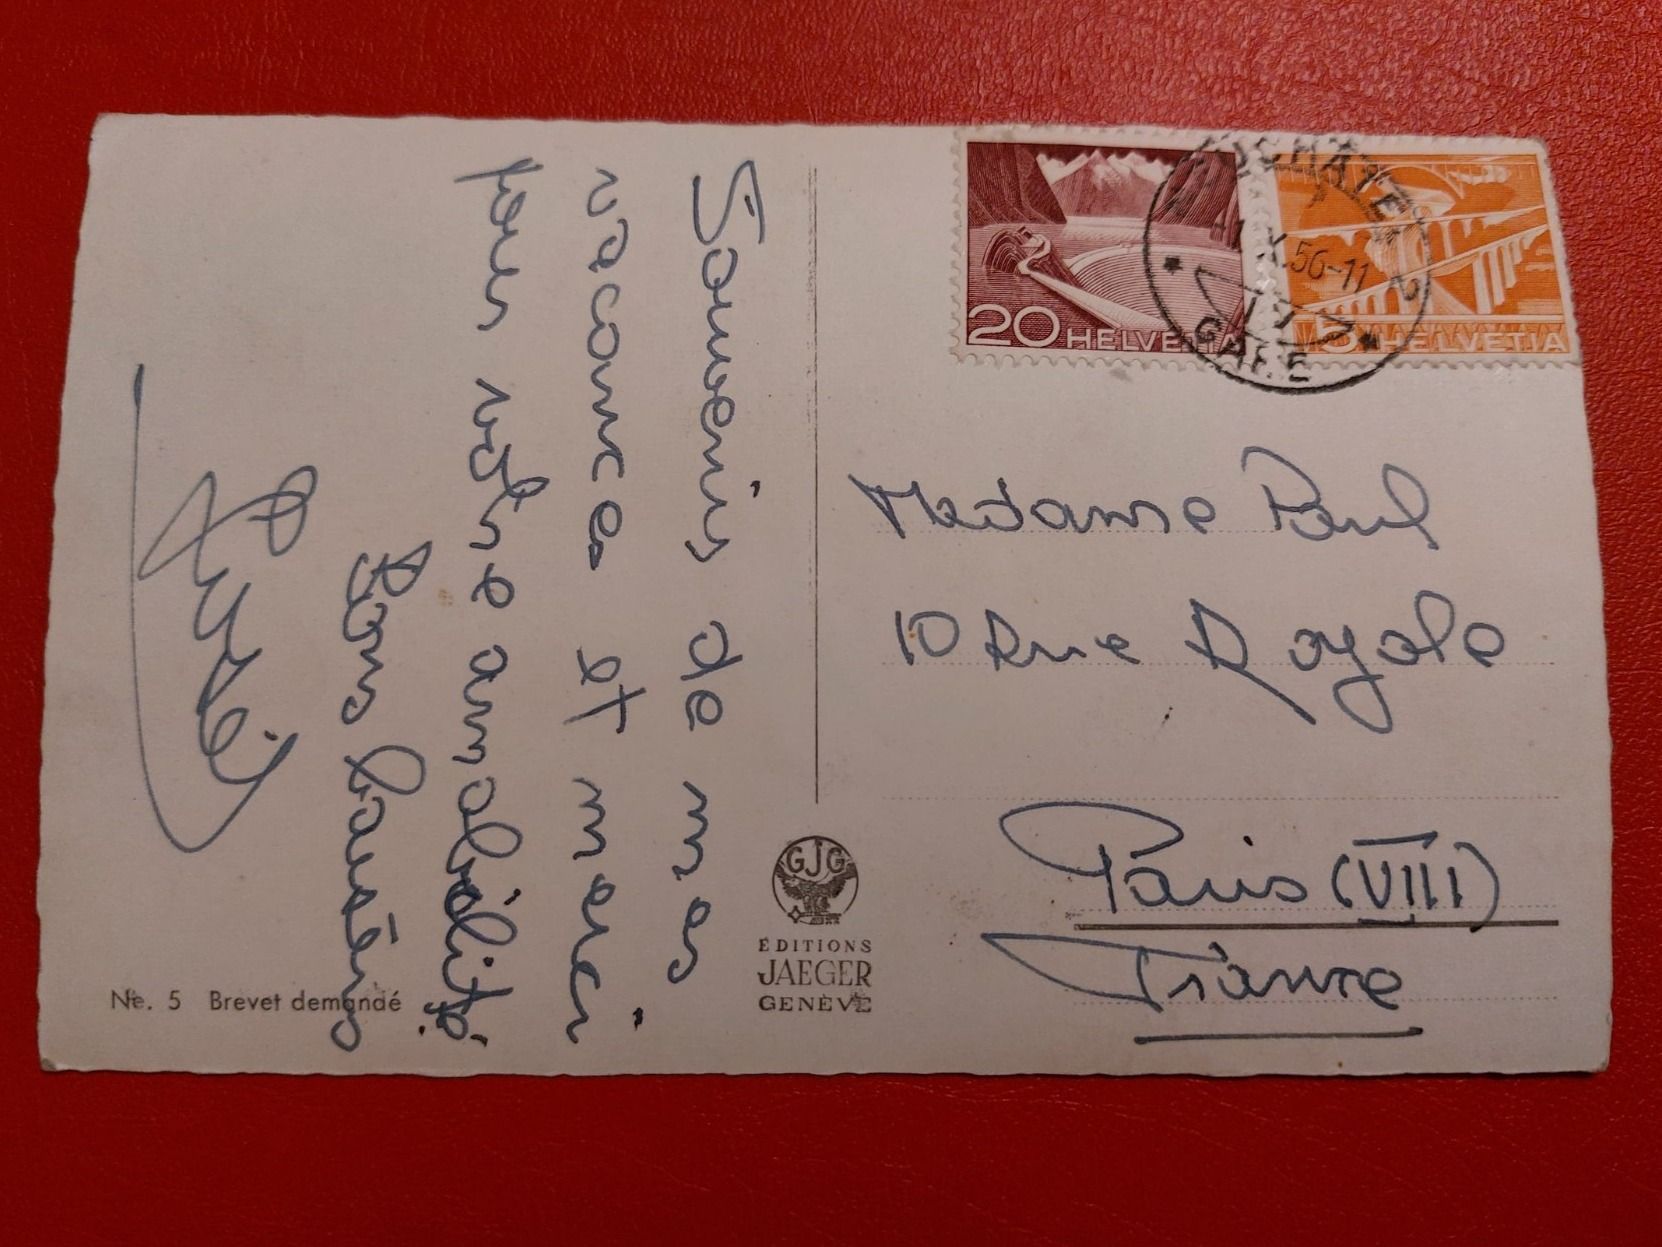 Souvenirs de mes
vacances et merci
pour votre amabilité.
Bons baisers
Ne. 5 Brevet demandé
GJG
ÉDITIONS
JAEGER
GENÈVE
20 HELVETIA
5 HELVETIA
56-11
2
GARE
Madame Paul
10 Rue Royale
Paris (VIII)
France